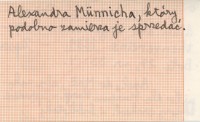 Alexandra Münnicha, który
podobno zamierza je sprzedać.